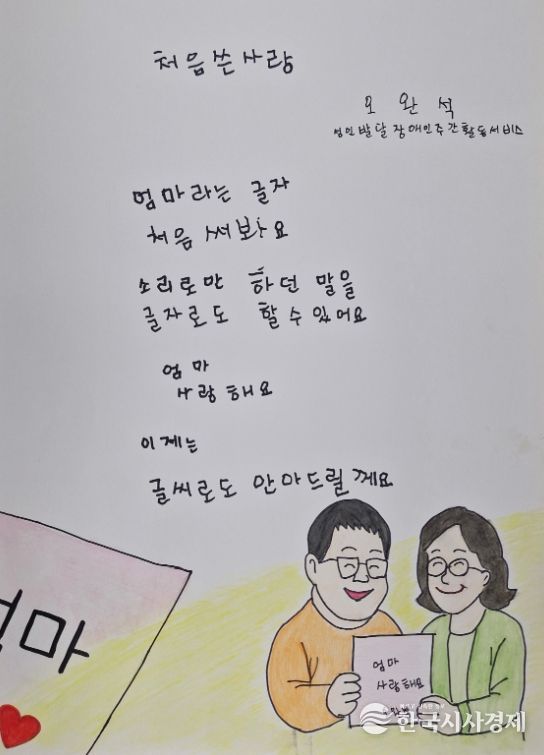 처음 쓴 사랑
오 완 석
성인발달장애인주간활동서비스
엄마라는 글자
처음 써봐요
소리로만 하던 말을
글자로도 할 수 있어요
엄마
사랑해요
이제는
글씨로도 안마드릴께요
엄마
엄마
사랑해요
한국시사경제